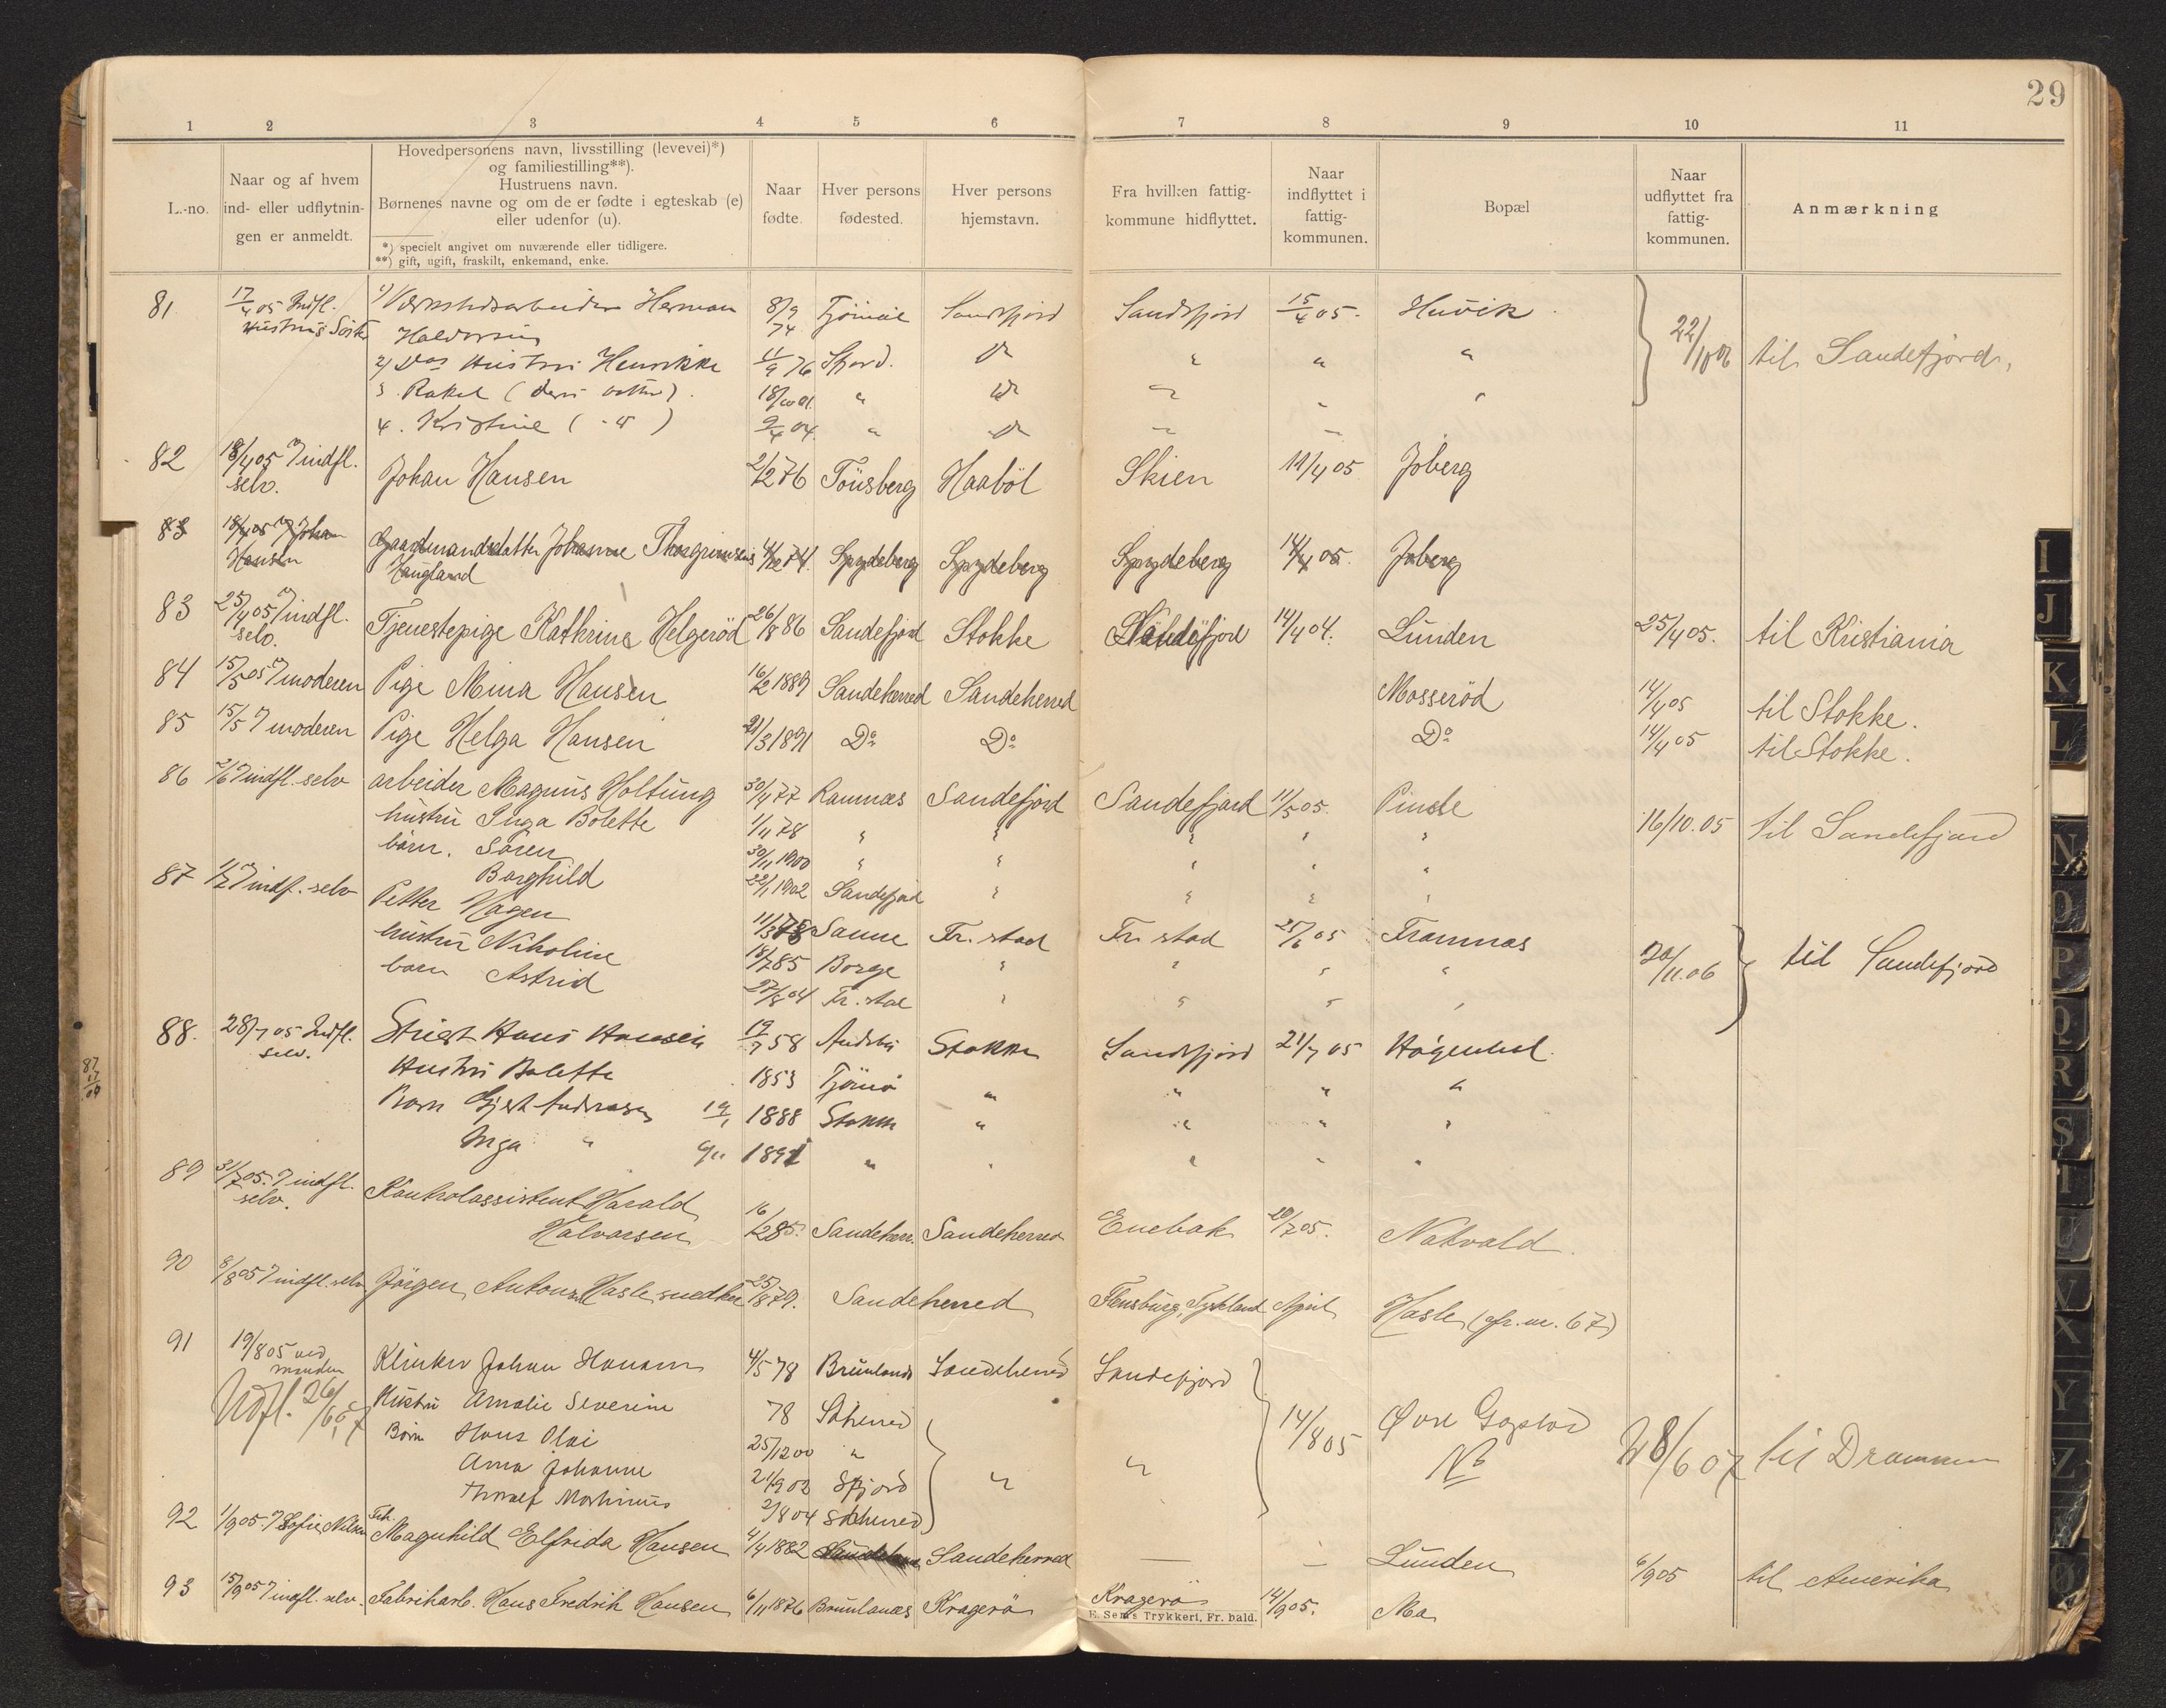 29
1 2 3 4 5 6 7 8 9 10 11
L.-no.
Naar og af hvem
ind- eller udflytnin-
gen er anmeldt.
Hovedpersonens navn, livsstilling (levevei)*)
og familiestilling**).
Hustruens navn.
Børnenes navne og om de er fødte i egteskab (e)
eller udenfor (u).
*) specielt angivet om nuværende eller tidligere.
**) gift, ugift, fraskilt, enkemand, enke.
Naar
fødte.
Hver persons
fødested.
Hver persons
hjemstavn.
Fra hvilken fattig-
kommune hidflyttet.
Naar
indflyttet i
fattig-
kommunen.
Bopæl
Naar
udflyttet fra
fattig-
kommunen.
Anmærkning
81 17/4 05 Indfl. 1) Herman 8/9 74 Sandefjord 15/4 05. Huvik 22/10 06 til Sandefjord,
Hustrus
2) Ds Hustru Henrikke 11/9 76 Sfjord. " " "
3. Rakel (deres datter). "
4. Kristine ( " ) 2/4 04 "
82 18/4 05 indfl. selv. Johan Hansen 2/2 76 Tönsberg Haaböl Skien 11/4 05 Joberg
83 18/4 05 Johan Hansen Gaardmandsdatter Johanne Thorgrimsens Haugland 4/12 74. Spydeberg Spydeberg Spydeberg 14/4 05. Joberg
83 25/4 05 indfl. selv. Tjenestepige Kathrine Helgeröd 26/8 86 Sandefjord Stokke Sandefjord 14/4 04. Lunden 25/4 05. til Kristiania
84 15/5 05 moderen Pige Mina Hansen 16/2 1889 Sandeherred Sandeherred Mosseröd 14/4 05 til Stokke.
85 15/5 moderen Pige Helga Hansen 21/3 1891 Do Do Do 14/4 05 til Stokke.
86 2/6 indfl. selv arbeider Magnus Holtung 30/4 77 Ramnæs Sandefjord Sandefjord 11/5 05. Pinde 16/10.05 til Sandefjord
hustru Inga Bolette 1/11 78 " " " " "
børn. Sören 30/11 1900 " " " " "
Borghild 22/1 1902 Sandefjord " " " "
87 indf. selv Petter Hagen 11/3 78 Sanne Fr. stad Fr. stad 25/6 05 Framnæs 20/11.06 til Sandefjord
hustru Nikoline 18/7 85 Borge " " " "
barn Astrid 27/8 04 Fr. stad " " " "
87 17/09
88. 28/7 05 Indfl. selv. Hans Hansen 19/7 58 Andebu Stokke Sandefjord 21/7 05
Hustru Bolette 1853 Tjömö " " " "
Børn Andreasen 19/1 1888 Stokke " " " "
Inga " 9/11 1891 " " " " "
89 31/7 05. indfl. selv. Kontrolassistent Harald
Halvorsen 16/2 85. Sandeherr. Sandeherred Enebak 20/7 05. Nakvald
90 8/8 05 indfl. selv Jörgen Anton Hasle snedker 25/8 79. Sandeherred Flensburg, Tyskland April Hasle (cfr. nr. 67)
91 19/8 05 ved manden Klinker Johan Hansen 4/5 78 Brunlanæs Sandeherred Sandefjord 14/8 05 Øvre Gogstad 28/6 07 til Drammen
Udfl. 26/6 07 Hustru Amalie Severine 78 Sdherred
Børn Hans Olai 25/12 00 " " "
Anna Johanne 21/9 02 Sfjord
Thoralf Martinius 2/8 04 Sdherred
92 1/9 05. Sofie Nilsen Frk. Magnhild Elfrida Hansen 4/4 1882 Sandeherred — — Lunden 6/9 05 til Amerika
93 15/9 05 indfl. selv. Fabrikarb. Hans Fredrik Hansen 6/11 1876 Brunlanæs Kragerö Kragerö 14/9 05. Mo
E. Sems Trykkeri, Fr. hald.
I
J
K
L
N
O
P
Q
R
S
T
U
V
X
Y
Z
Ø